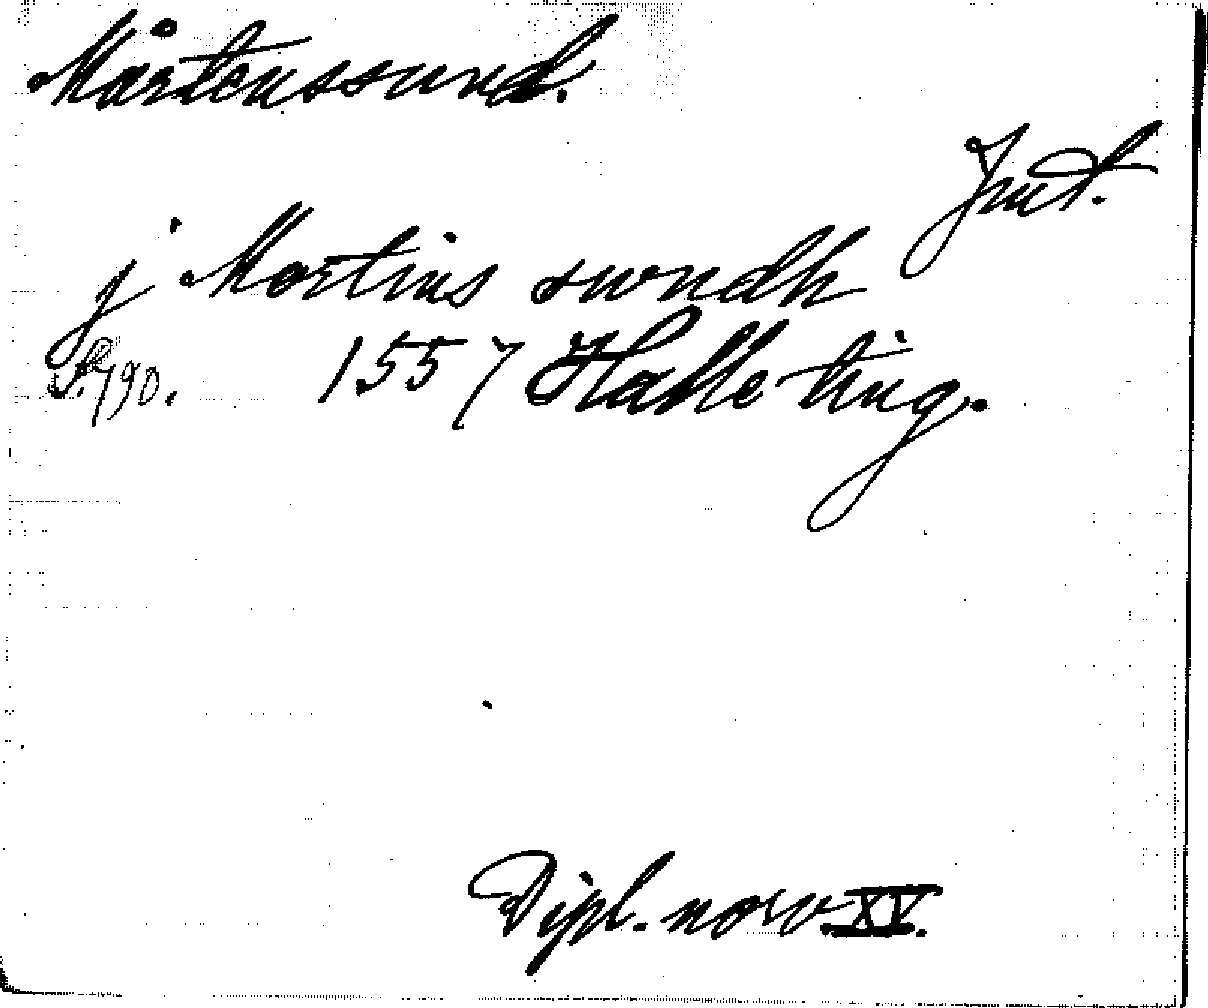 Mårtenssund.
Jmt.
j Mortins swndh
S. 790. 1557 Halle ting.
Dipl. norv. XV.